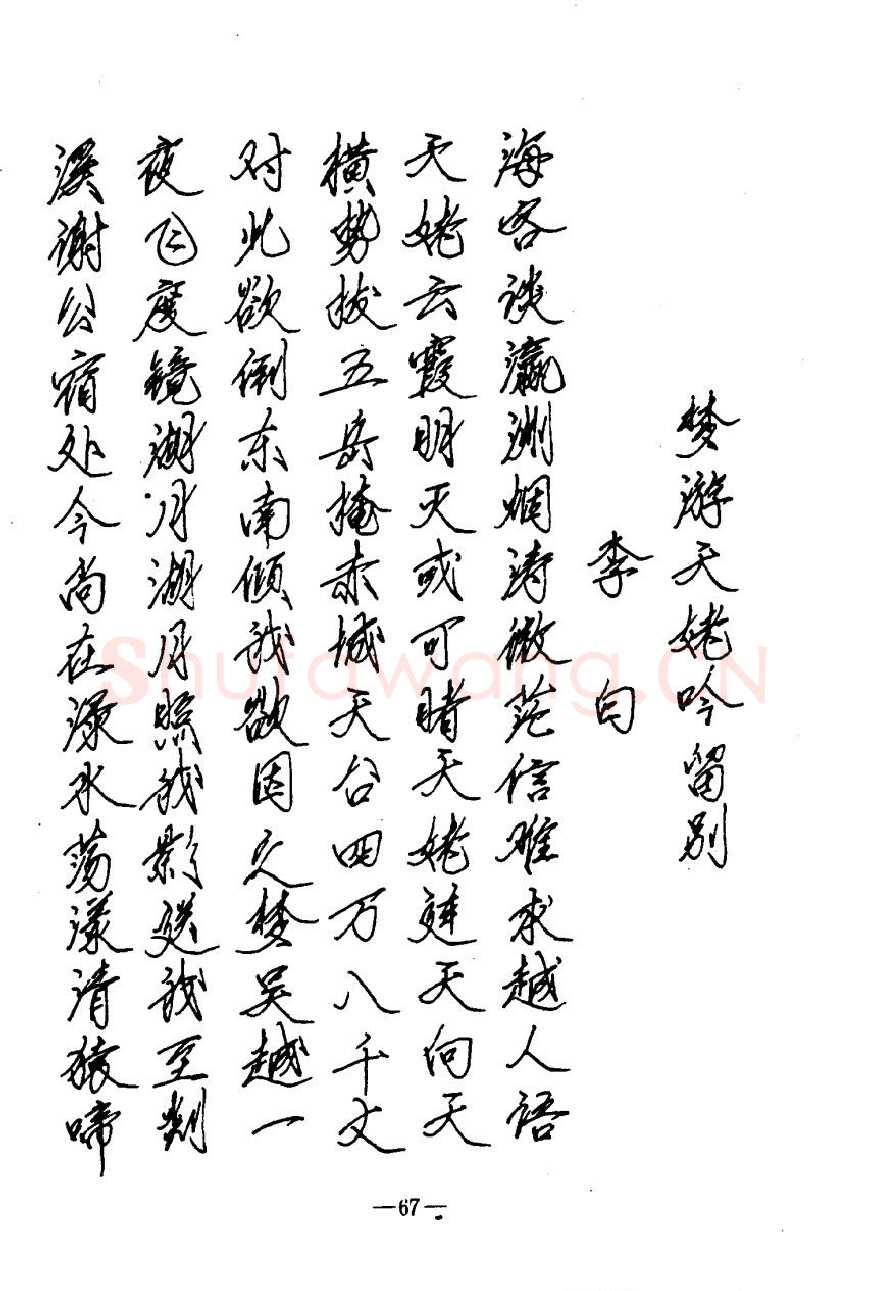 梦游天姥吟留别
李白
海客谈瀛洲烟涛微茫信难求越人语
天姥云霞明灭或可睹天姥连天向天
横势拔五岳掩赤城天台四万八千丈
对此欲倒东南倾我欲因之梦吴越一
夜飞度镜湖月湖月照我影送我至剡
溪谢公宿处今尚在渌水荡漾清猿啼
—67—
Shufawang.CN